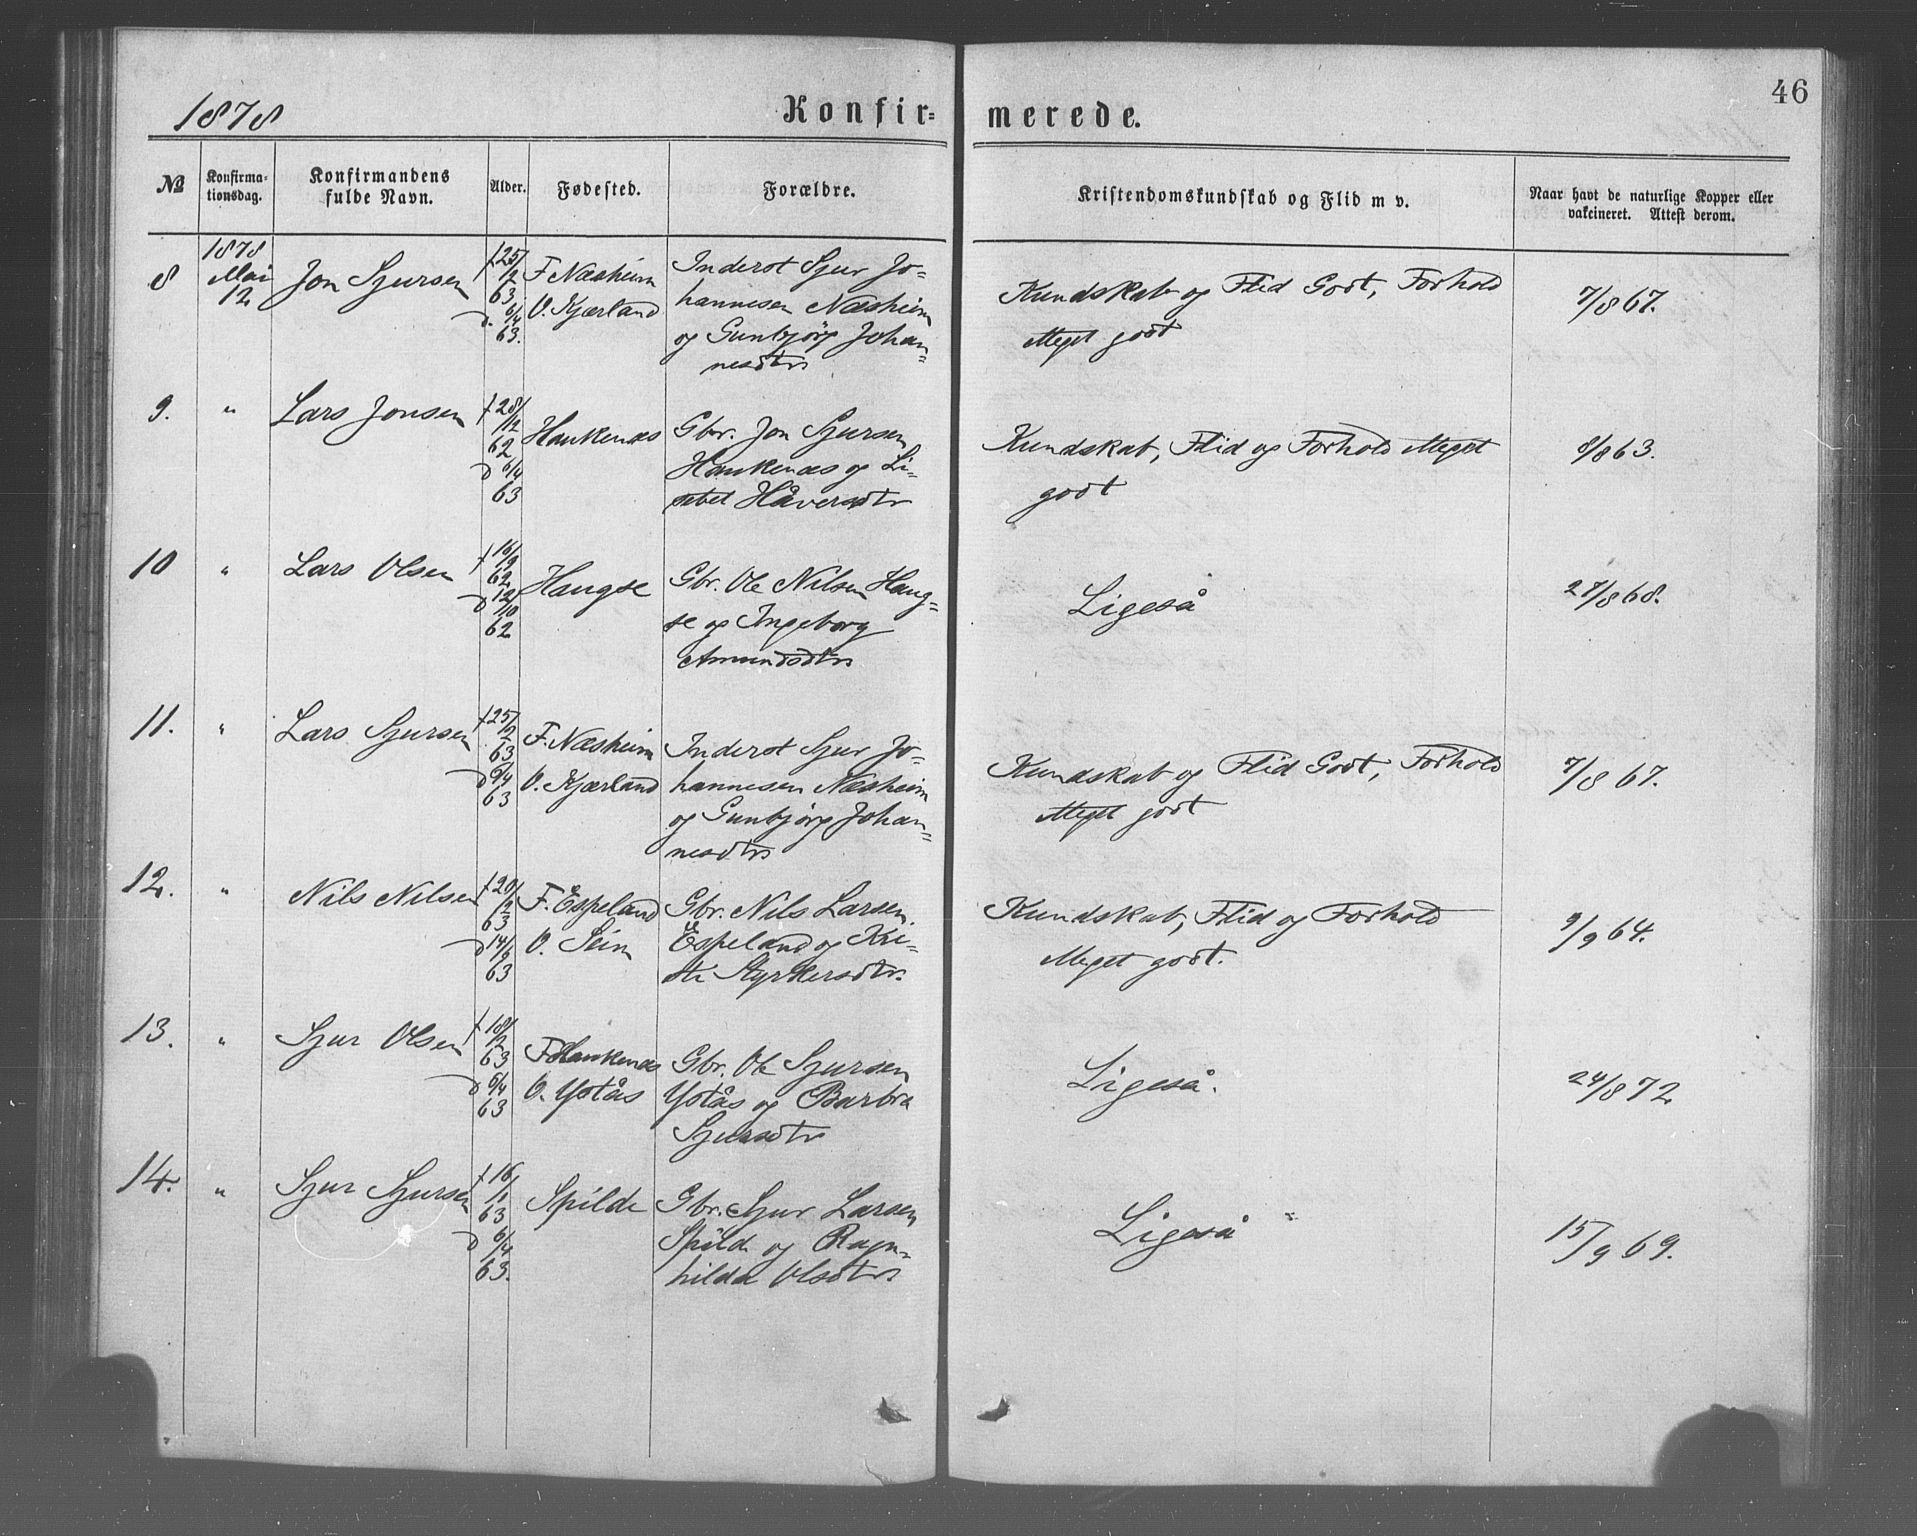 46
1878 Konfir= merede.
№ Konfirma-tionsdag. Konfirmandens fulde Navn. Alder. Fødested. Forældre. Kristendomskundskab og Flid m v. Naar havt de naturlige Kopper eller vakcineret. Attest derom.
8 1878 Mai 12 Jon Sjursen f 25/2 63 d. 6/4 63. F. Næsheim O. Kjærland
Inderst Sjur Jo=
hannesen Næsheim
og Gunbjörg Johan=
nesdtr
Kundskab og Flid Godt, Forhold
Meget godt
7/8 67.
9. " Lars Jonsen f 28/12 62 d 6/4 63 Haukenæs
Gbr. Jon Sjursen
Haukenæs og Li=
sebet Håversdtr
Kundskab, Flid og Forhold Meget
godt
8/8 63.
10 " Lars Olsen f 16/9 62 d 12/10 62 Haugse
Gbr. Ole Nilsen Haug=
se og Ingeborg
Amundsdtr
Ligeså
27/8 68.
11. " Lars Sjursen f 25/2 63 d 6/4 63 F. Næsheim O. Kjærland
Inderst Sjur Jo=
hannesen Næsheim
og Gunbjörg Johan=
nesdtr
Kundskab og Flid Godt, Forhold
Meget godt
7/8 67.
12. " Nils Nilsen f 20/2 63 d 14/5 63 F. Espeland O. Seim
Gbr. Nils Larsen
Espeland og Kri=
sti Styrkersdtr.
Kundskab, Flid og Forhold
Meget godt.
9/9 64.
13. " Sjur Olsen f 18/2 63 d 6/4 63 F Haukenæs O. Ystås
Gbr. Ole Sjursen
Ystås og Barbra
Sjursdtr
Ligeså.
24/8 72
14. " Sjur Sjursen f 16/1 63 d 6/4 63. Spilde
Gbr. Sjur Larsen
Spilde og Ragn=
hilda Olsdtr.
Ligeså
15/9 69.